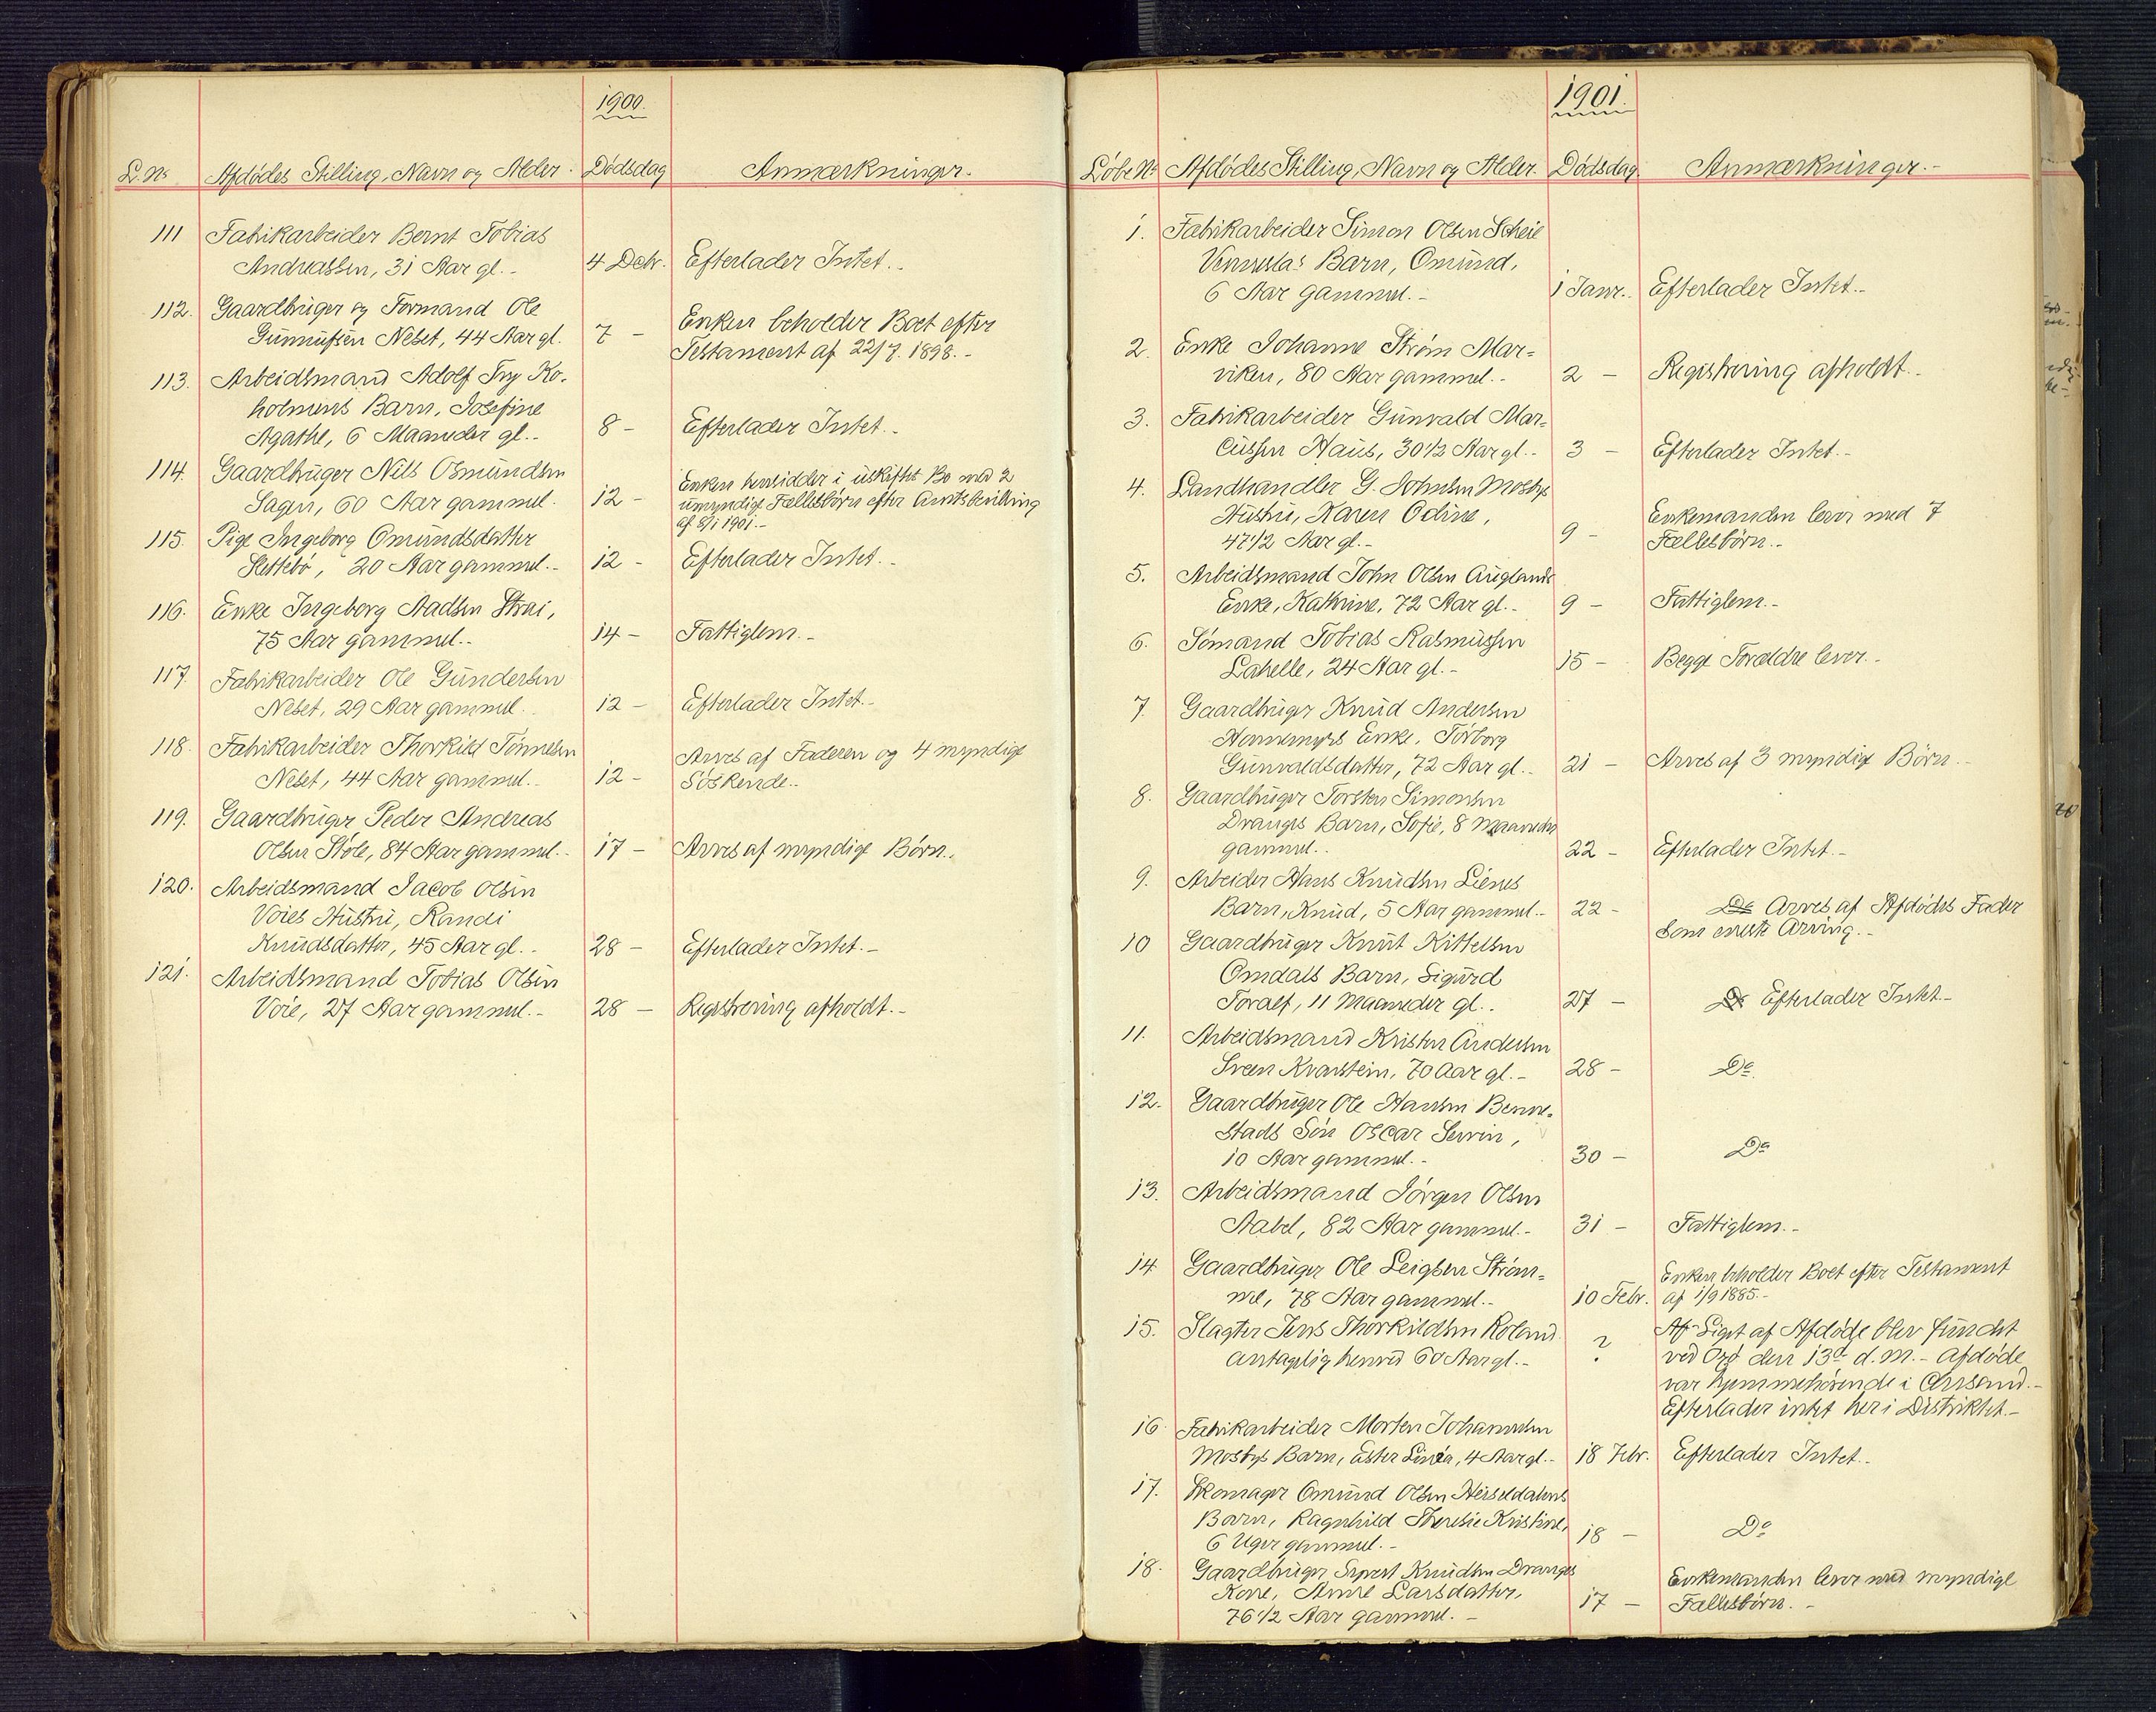 1900.
L. No Afdödes Stilling, Navn og Alder. Dödsdag Anmærkninger.
111 Fabrikarbeider Bernt Tobias
Andreassen, 31 Aar gl. 4 Decbr. Efterlader Intet.
112. Gaardbruger og Formand Ole
Gunnufsen Neset, 44 Aar gl. 7 - Enken beholder Boet efter
Testament af 22/7. 1898.
113. Arbeidsmand Adolf Try Ko-
holmens Barn, Josefine
Agathe, 6 Maaneder gl. 8 - Efterlader Intet.
114. Gaardbruger Nils Osmundsen
Sagen, 60 Aar gammel. 12 - Enken hensidder i uskiftet Bo med 2
umyndige Fællesbörn efter Amtsbevilling
af 8/1 1901.
115. Pige Ingeborg Omundsdatter
Slettebö, 20 Aar gammel. 12 - Efterlader Intet.
116. Enke Ingeborg Aadsen Strai,
75 Aar gammel. 14 - Fattiglem.
117. Fabrikarbeider Ole Gundersen
Neset, 29 Aar gammel. 12 - Efterlader Intet.
118. Fabrikarbeider Thorkild Tönnesen
Neset, 44 Aar gammel. 12 - Arves af Faderen og 4 myndige
Söskende.
119. Gaardbruger Peder Andreas
Olsen Stöle, 84 Aar gammel. 17 - Arves af myndige Börn.
120. Arbeidsmand Jacob Olsen
Voies Hustru, Randi
Knudsdatter, 45 Aar gl. 28 - Efterlader Intet.
121. Arbeidsmand Tobias Olsen
Voie, 27 Aar gammel. 28 - Registrering afholdt.
1901.
Löbe No Afdödes Stilling, Navn og Alder. Dödsdag. Anmærkninger.
1. Fabrikarbeider Simon Olsen Scheie
Venneslas Barn, Omund,
6 Aar gammel. 1 Janr. Efterlader Intet.
2. Enke Johanne Ström Mar-
viken, 80 Aar gammel. 2 - Registrering afholdt.
3. Fabrikarbeider Gunvald Mar-
cussen Haus, 30 1/2 Aar gl. 3 - Efterlader Intet.
4. Landhandler G. Johnsen Mosbys
Hustru, Karen Odine,
47 1/2 Aar gl. 9 - Enkemanden lever med 7
Fællesbörn.
5. Arbeidsmand John Olsen Auglands
Enke, Kathrine, 72 Aar gl. 9 - Fattiglem.
6. Sömand Tobias Rasmussen
Lahelle, 24 Aar gl. 15 - Begge Forældre lever.
7. Gaardbruger Knud Andersen
Honnemyrs Enke, Torborg
Gunvaldsdatter, 72 Aar gl. 21 - Arves af 3 myndige Börn.
8. Gaardbruger Torsten Simonsen
Dranges Barn, Sofie, 8 Maaneder
gammel. 22 - Efterlader Intet.
9. Arbeider Hans Knudsen Lienes
Barn, Knud, 5 Aar gammel. 22 - Do Arves af Afdödes Fader
som eneste Arving.
10 Gaardbruger Knut Kittelsen
Omdals Barn, Sigurd
Toralf, 11 Maaneder gl. 27 - Do Efterlader Intet.
11. Arbeidsmand Kristen Andersen
Sveen Kvarstein, 70 Aar gl. 28 - Do
12. Gaardbruger Ole Hansen Benne-
stads Sön Oscar Severin,
10 Aar gammel. 30 - Do
13. Arbeidsmand Jörgen Olsen
Aabel, 82 Aar gammel. 31 - Fattiglem.
14 Gaardbruger Ole Leigsen Ström-
me, 78 Aar gammel. 10 Febr. Enken beholder Boet efter Testament
af 1/9 1885.
15. Slagter Jens Thorkildsen Roland
antagelig henved 60 Aar gl. ? Af Liget af Afdöde blev fundet
ved Oxö den 13de d.M. - Afdöde
var hjemmehörende i Chrsand.
Efterlader intet her i Distriktet.
16. Fabrikarbeider Morten Johannesen
Mosbys Barn, Ester Linéa, 4 Aar gl. 18 Febr. Efterlader Intet.
17. Skomager Omund Olsen Herseldalens
Barn, Ragnhild Theresie Kristine,
6 Uger gammel. 18 - Do
18. Gaardbruger Sivert Knudsen Dranges
Kone, Anne Larsdatter,
76 1/2 Aar gammel. 17 - Enkemanden lever med myndige
Fællesbörn.